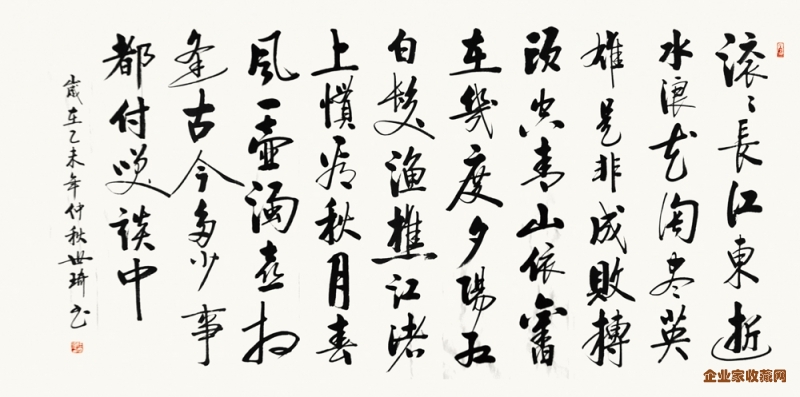 滚〻長江東逝
水浪花淘尽英
雄是非成敗轉
頭空青山依舊
在幾度夕陽红
白髮渔樵江渚
上慣看秋月春
風一壺濁喜相
逢古今多少事
都付咲談中
歲在乙未年仲秋世琦书
企业家收藏网